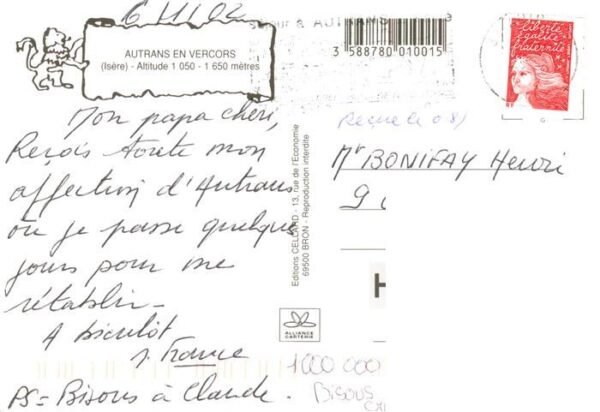 6 11 02
AUTRANS EN VERCORS
(Isère) - Altitude 1 050 - 1 650 mètres
Mon papa chéri,
Reçois toute mon
affection d'Autrans
où je passe quelque
jours pour me
rétablir -
A bientôt
France
PS = Bisous à Claude.
Editions CELLARD - 13, rue de l'Economie
69500 BRON - Reproduction interdite
ALLIANCE
CARTERIE
à AUTRANS
3 588780 010015
liberté
égalité
fraternité
Reçue le 08/
Mr BONIFAY Henri
9
H
1000 000
Bisous